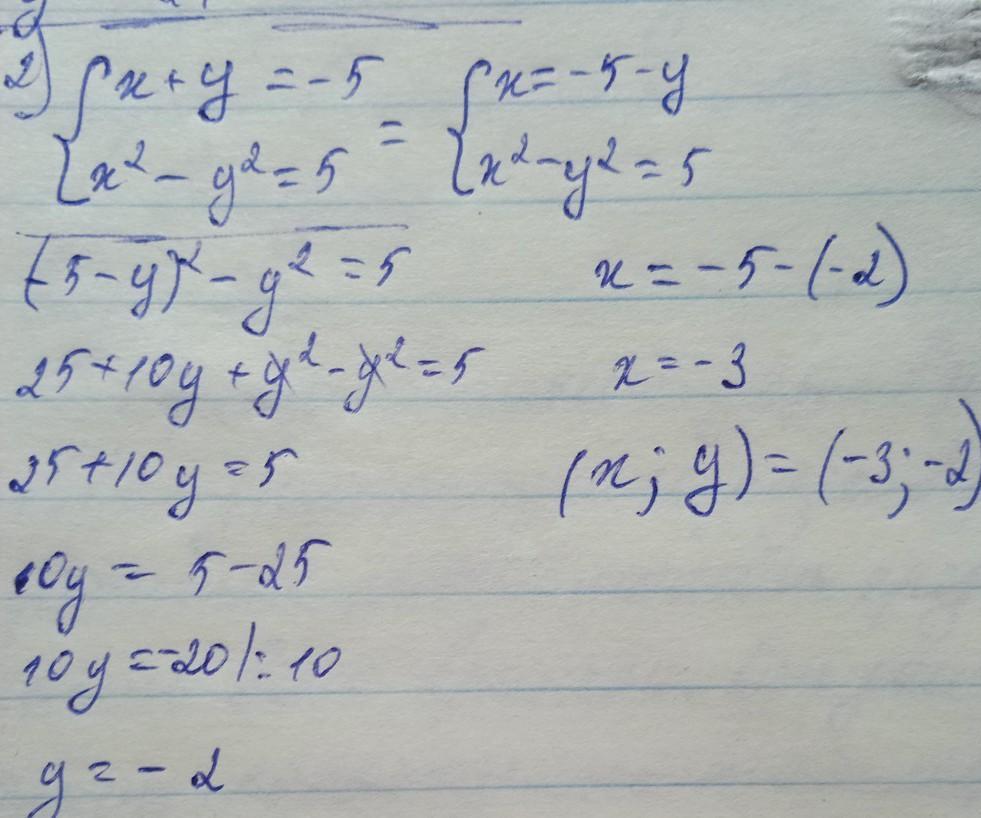 2) { x + y = -5 = { x = -5 - y
x² - y² = 5 x² - y² = 5
(-5 - y)² - y² = 5
25 + 10y + y² - y² = 5
25 + 10y = 5
10y = 5 - 25
10y = -20 |: 10
y = - 2
x = -5 - (-2)
x = -3
(x; y) = (-3; -2)